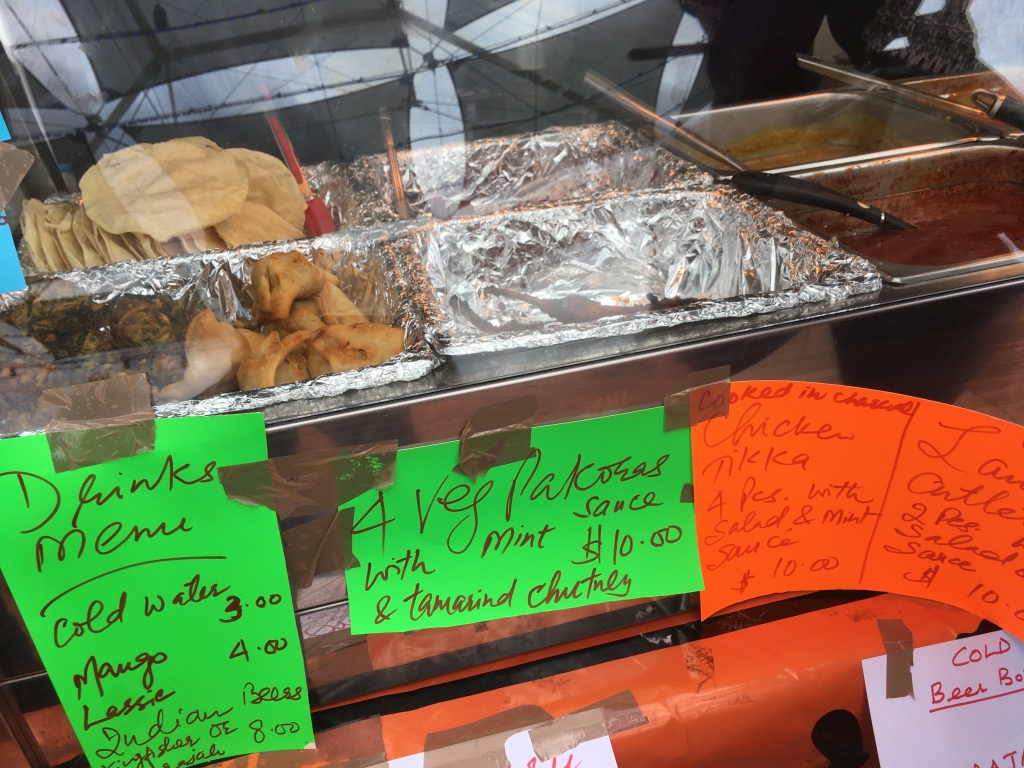 Drinks
menu
Cold water
3.00
Mango 4.00
Lassie
Indian Beers
Kingfisher or 8.00
4 Veg Pakoras
with Mint sauce
$10.00
& tamarind chutney
Cooked in charcoal
Chicken
Tikka
4 Pcs. with
Salad & Mint
sauce
$ 10.00
2 Pcs
Salad
Sauce
$ 10.0
COLD
Beer